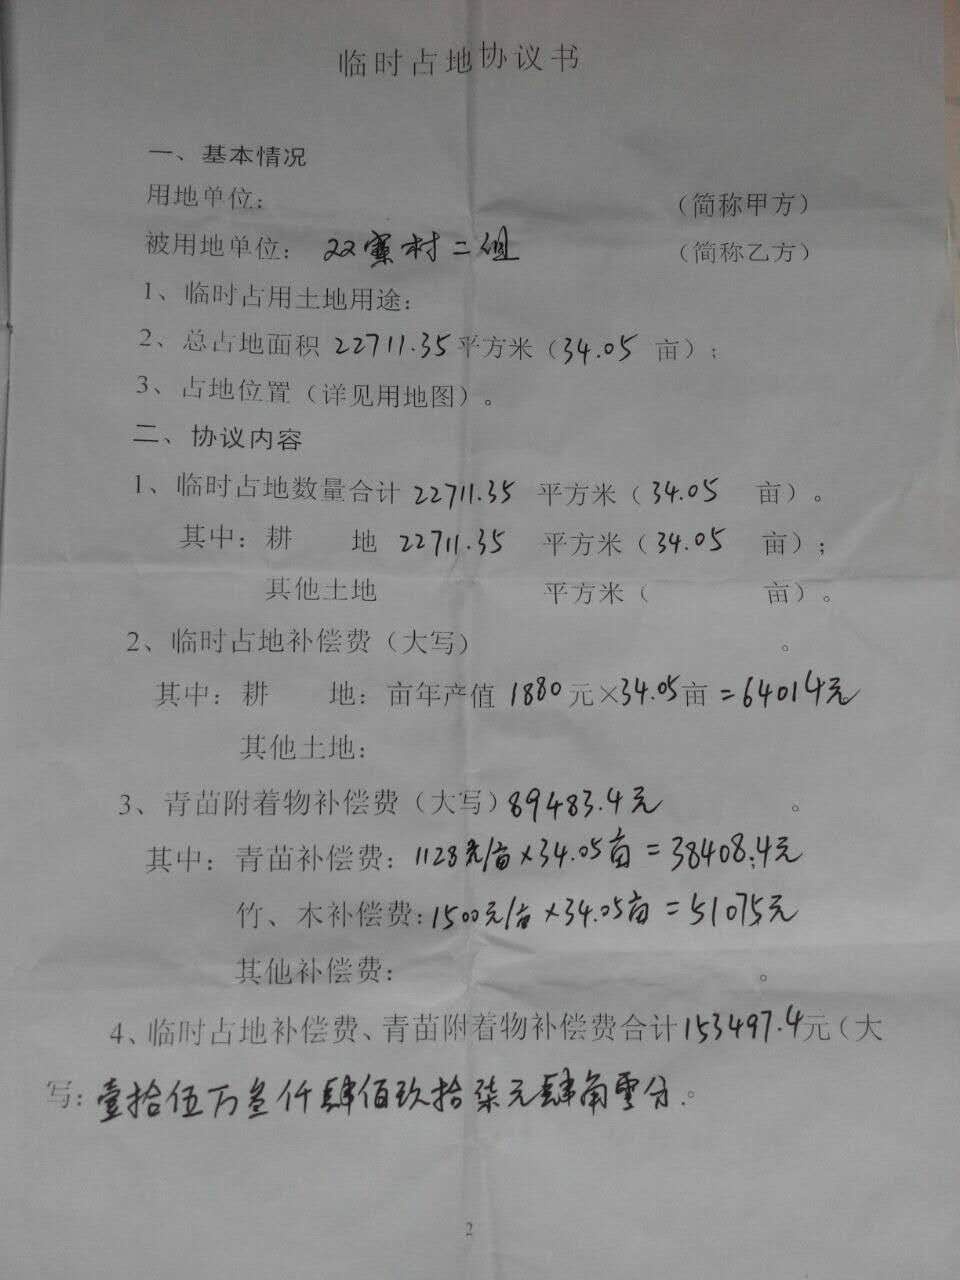 临时占地协议书
一、基本情况
用地单位: （简称甲方）
被用地单位: 双寨村二组 （简称乙方）
1、临时占用土地用途:
2、总占地面积 22711.35 平方米（34.05 亩）;
3、占地位置（详见用地图）。
二、协议内容
1、临时占地数量合计 22711.35 平方米（34.05 亩）。
其中: 耕 地 22711.35 平方米（34.05 亩）;
其他土地 平方米（ 亩）。
2、临时占地补偿费（大写） 。
其中: 耕 地: 亩年产值 1880 元×34.05亩=64014元
其他土地:
3、青苗附着物补偿费（大写）89483.4元 。
其中: 青苗补偿费: 1128元/亩×34.05亩=38408.4元
竹、木补偿费: 1500元/亩×34.05亩=51075元
其他补偿费: 。
4、临时占地补偿费、青苗附着物补偿费合计153497.4元（大
写: 壹拾伍万叁仟肆佰玖拾柒元肆角零分.。
2